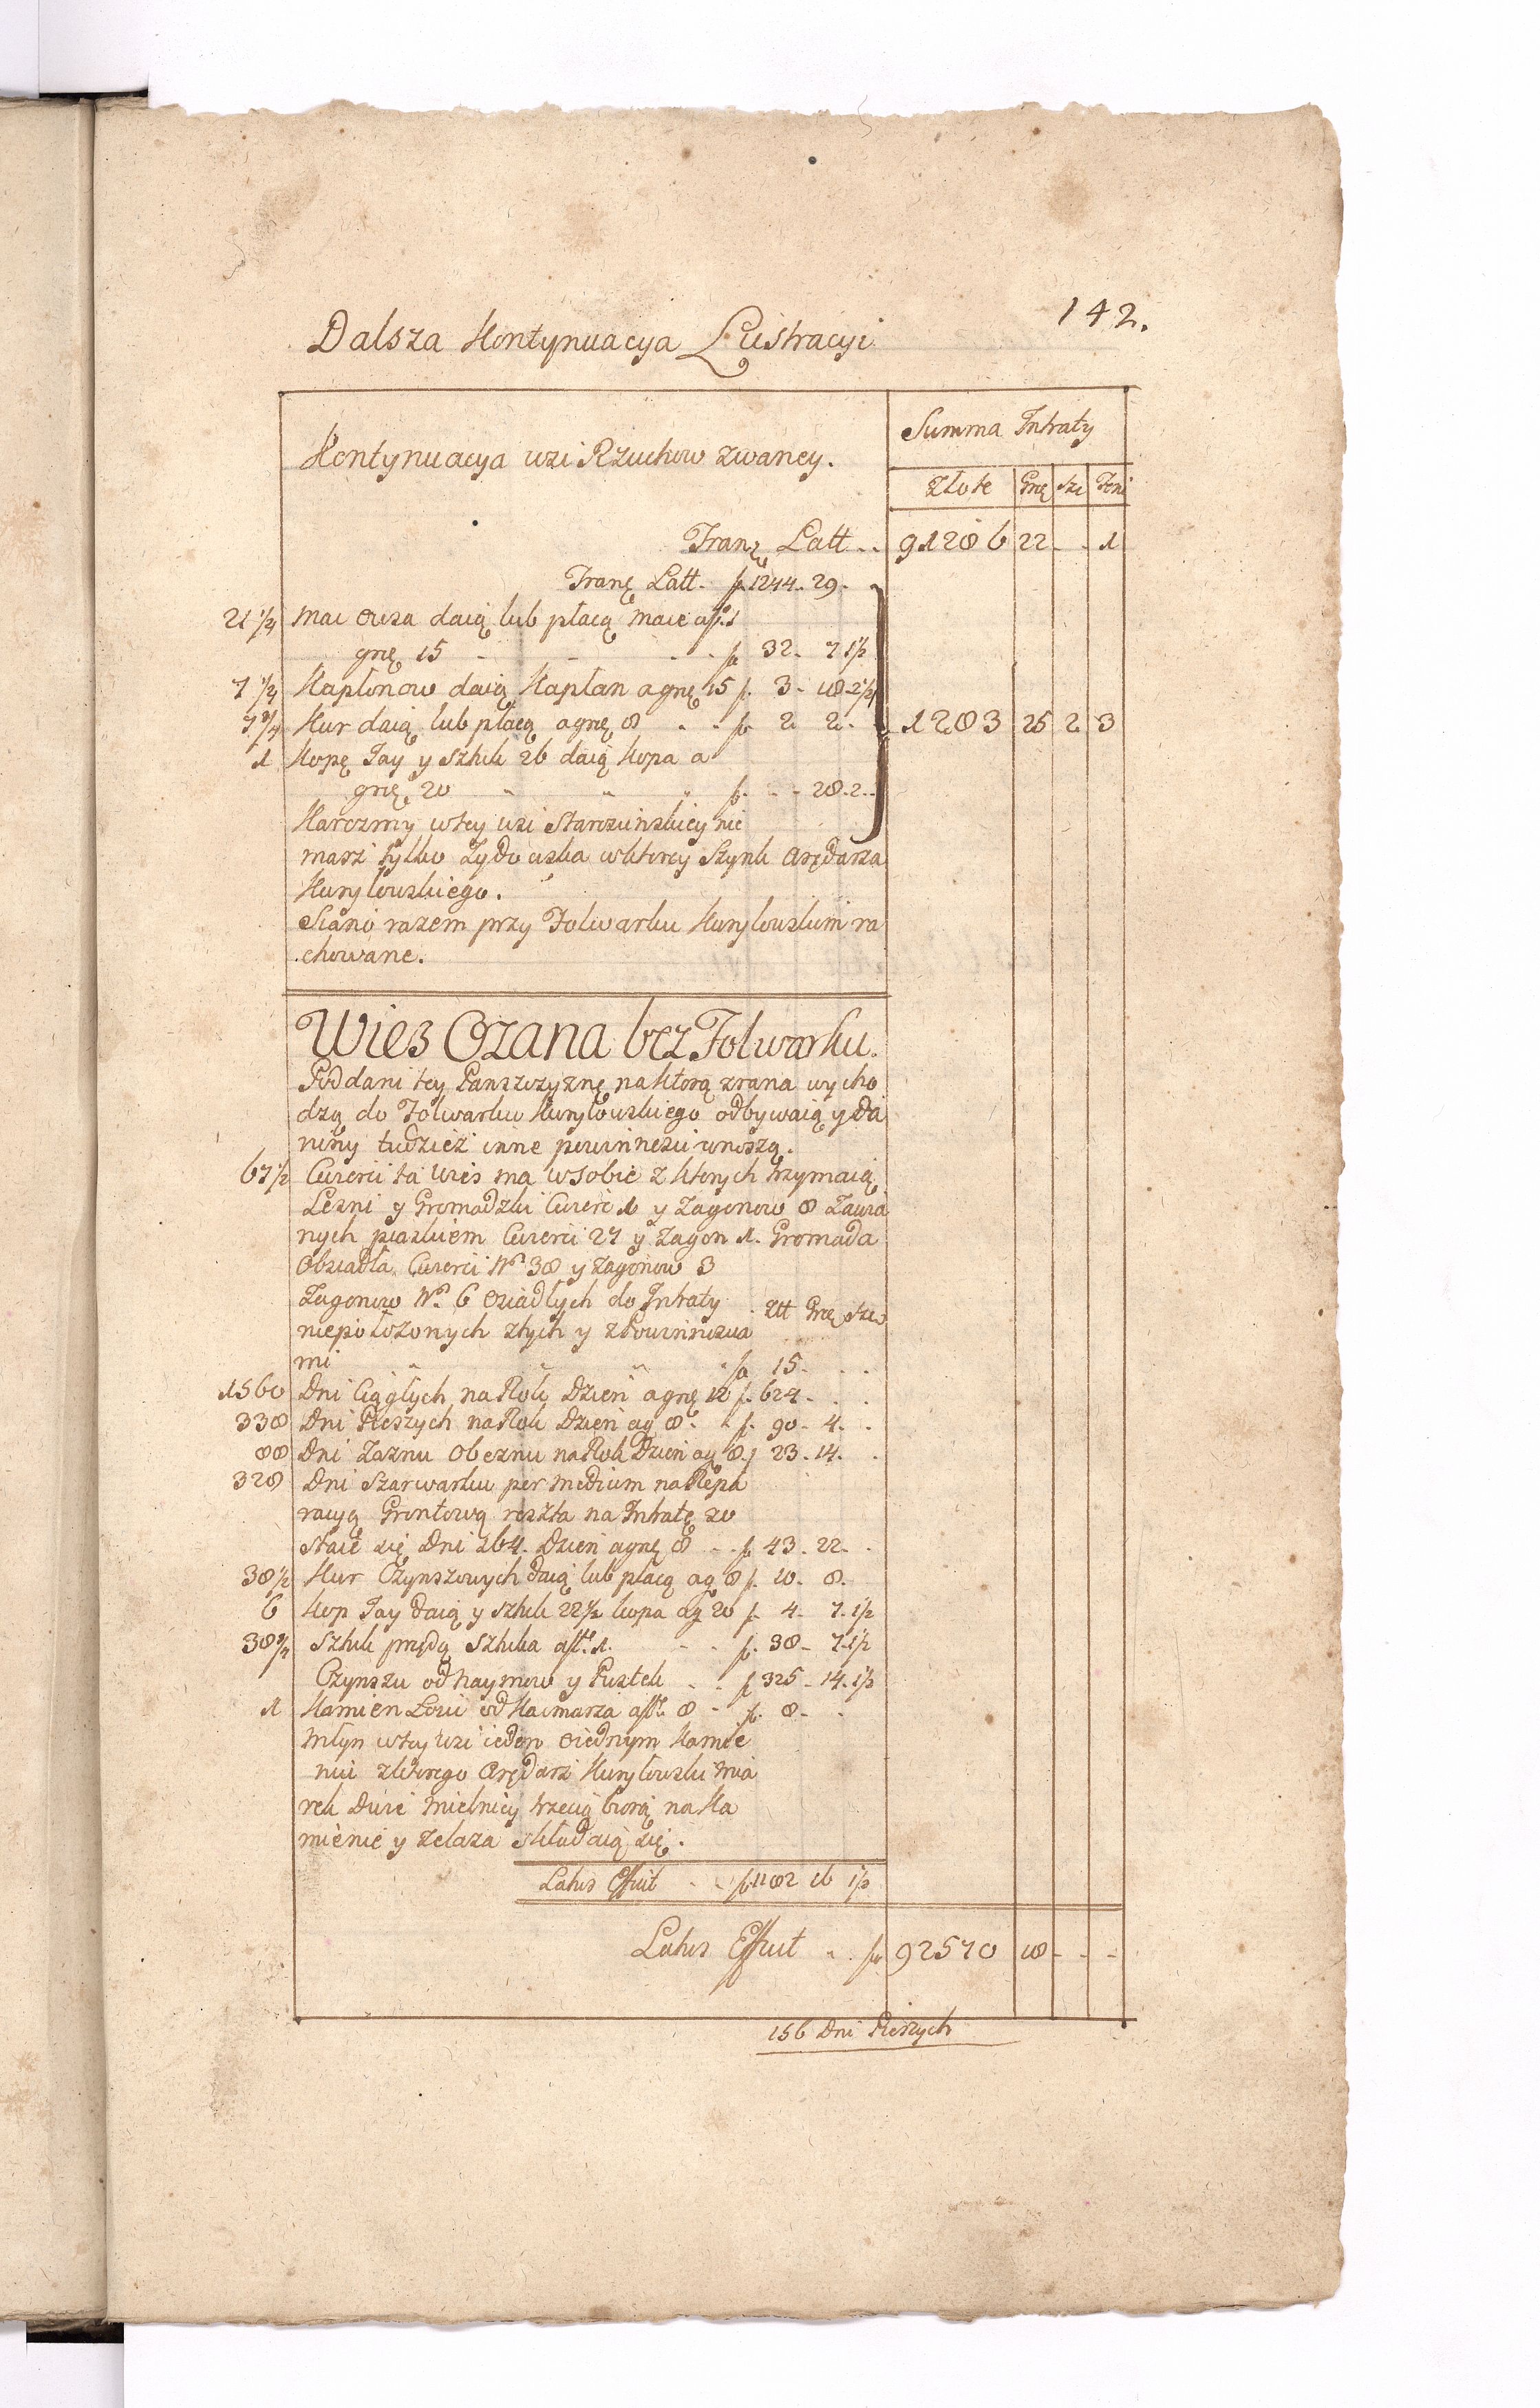 142.
Dalsza Kontynuacya Lustracyi
Kontynuacya wsi Rzuchow zwaney.
Summa Intraty
Złote Grę Sze Feni
Tranę Latt. . 91286 22 - . 1
Tranę Latt. f. 1244. 29.
21 1/2 Mac Owsa daią lub płacą Mace af. 1
grę 15 - - . . f 32. 7 1/2
7 1/4 Kapłonow daią Kapłan agrę 15 f. 3 - 18 - 2 1/4
7 3/4 Kur daią lub płacą agrę 8 . . f. 2 2. 1283 25 2 3
1 Kopę Jay y sztuk 26 daią Kopa a
grę 20 " " " f. . - 28. 2.
Karczmy wtey wsi Starościnskiey nie
masz tylko Zydowska wktorey Szynk Arędarza
Kuryłowskiego.
Siano razem przy Folwarku Kuryłowskim ra
chowane.
Wies Ożana bez Folwarku.
Poddani tey Panszczyznę na ktorą zrana wycho
dzą do Folwarku Kuryłowskiego odbywaią y da
niny tudzież inne powinnosci wnoszą.
67 1/2 Cwierci ta Wies ma w Sobie z ktorych trzymaią
Lesni y Gromadzki Cwierć 1 y Zagonow 8 Zawia
nych piaskiem Cwierci 27 y Zagon 1. Gromada
Obsiadła Cwierci No 38 y Zagonow 3
Zagonow No. 6 Osiadłych do Intraty
niepołożonych złych y zPowinnoscia . Ztt Grę Sze
mi " " " f 15. . .
1560 Dni Ciągłych na Rok Dzien agrę 12 f. 624. . .
338 Dni Pieszych na Rok Dzien ag 8. f. 90 - 4. .
88 Dni Zaznu Obeznu na Rok Dzien ag 8. f 23. 14. .
328 Dni Szarwarku per medium na Repa
racyą Grontową reszta na Intratę zo
staie się Dni 164. Dzien agrę 8 . . f. 43. 22. .
38 1/2 Kur Czynszowych daią lub płacą ag 8 f. 10. 8.
6 Kop Jay daią y sztuk 22 1/2 kopa ag 20 f. 4 - 7. 1 1/2
38 1/4 Sztuk prędą Sztuka aft. 1. - . f. 38 - 7. 1 1/2
Czynszu od haymow y Pustek . . f 325 - 14. 1 1/2
1 Kamien Łoiu od Kacmarza aft. 8 - f. 8 - .
Młyn wtey wsi ieden oiednym Kamie
niu zktorego Arędarz Kuryłowski mia
rek dwie mielnicy trzecią biorą na Ka
mienie y żelaza składaią się.
Latus Effuit . . f. 1182 16 1 1/2
Latus Effuit . . f. 92570 18 - - -
156 Dni Pieszych